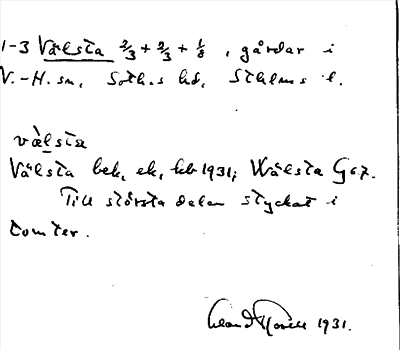 1-3 Välsta 2/3 + 2/3 + 1/8, gårdar i
V.-H. sn, Soth.s hd, Sthlms l.
vàlsta
Välsta bek, ek, kb 1931; Wälsta G67.
Till största delen styckat i
tomter.
1931.